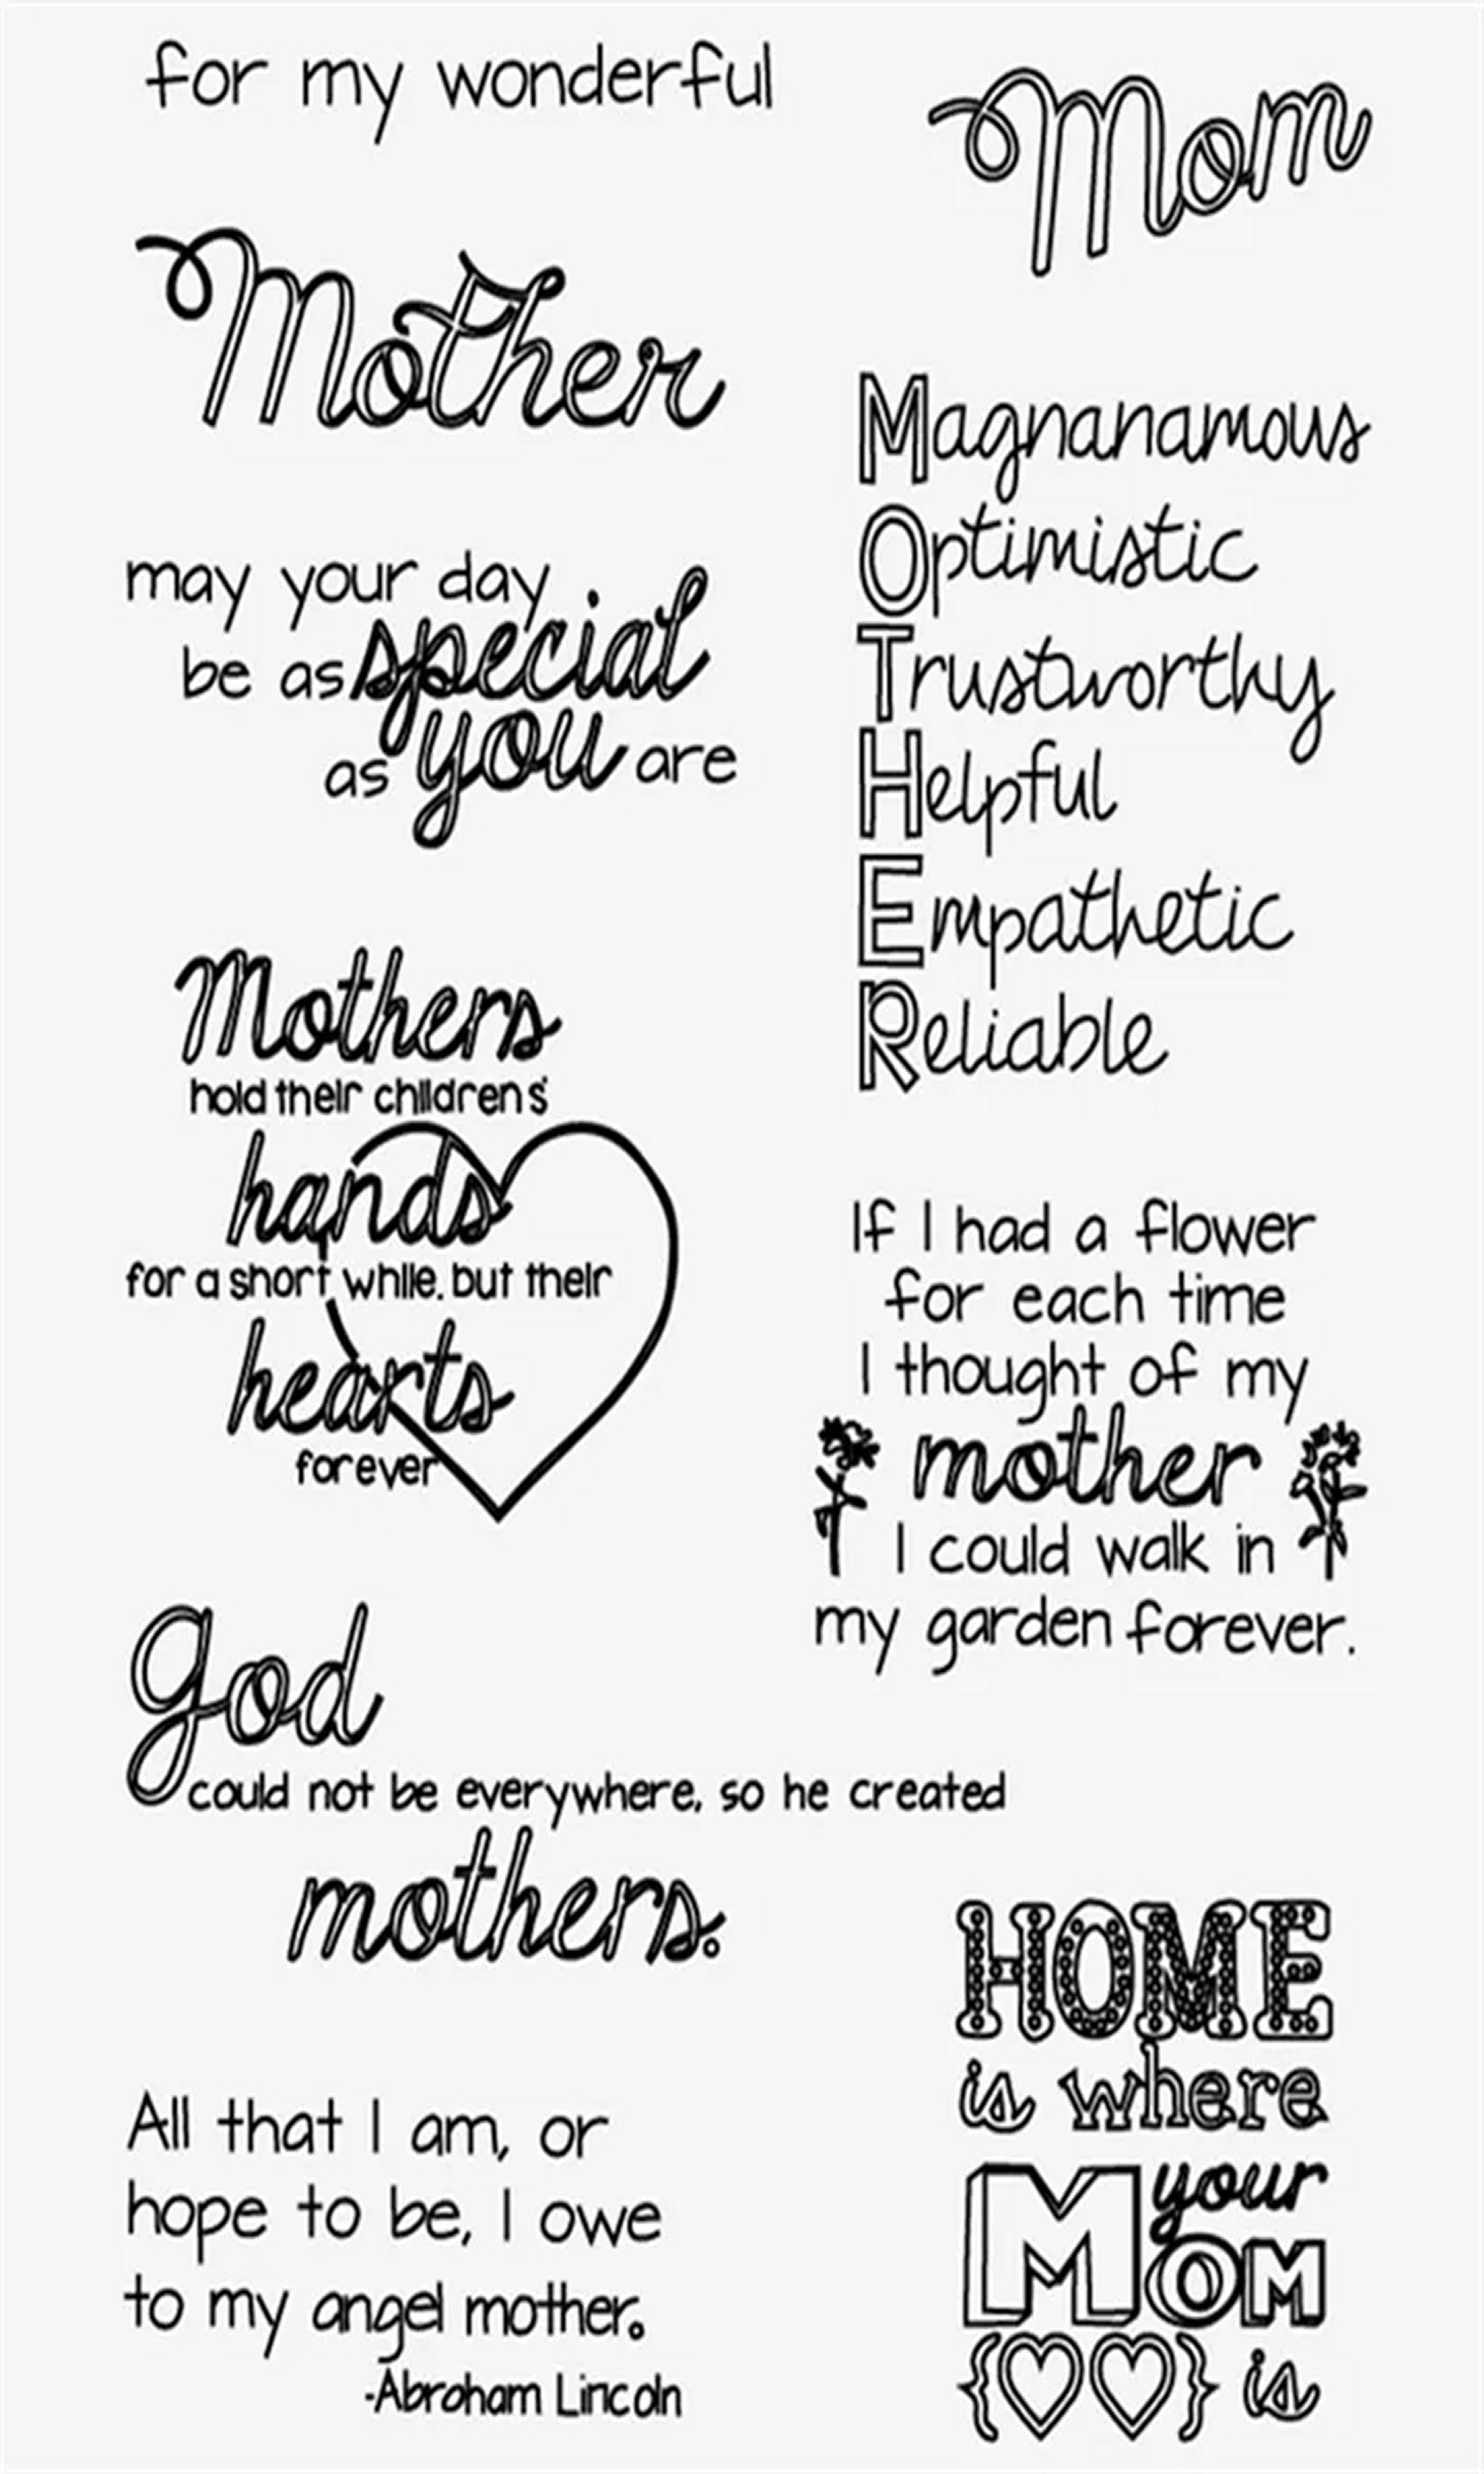 for my wonderful
Mother
may your day
be as special
as you are
Mothers
hold their childrens'
hands
for a short while. but their
hearts
forever
God
could not be everywhere, so he created
mothers.
All that I am, or
hope to be, I owe
to my angel mother.
-Abraham Lincoln
Mom
Magnanamous
Optimistic
Trustworthy
Helpful
Empathetic
Reliable
If I had a flower
for each time
I thought of my
mother
I could walk in
my garden forever.
HOME
is where
your
MOM
{♡♡} is